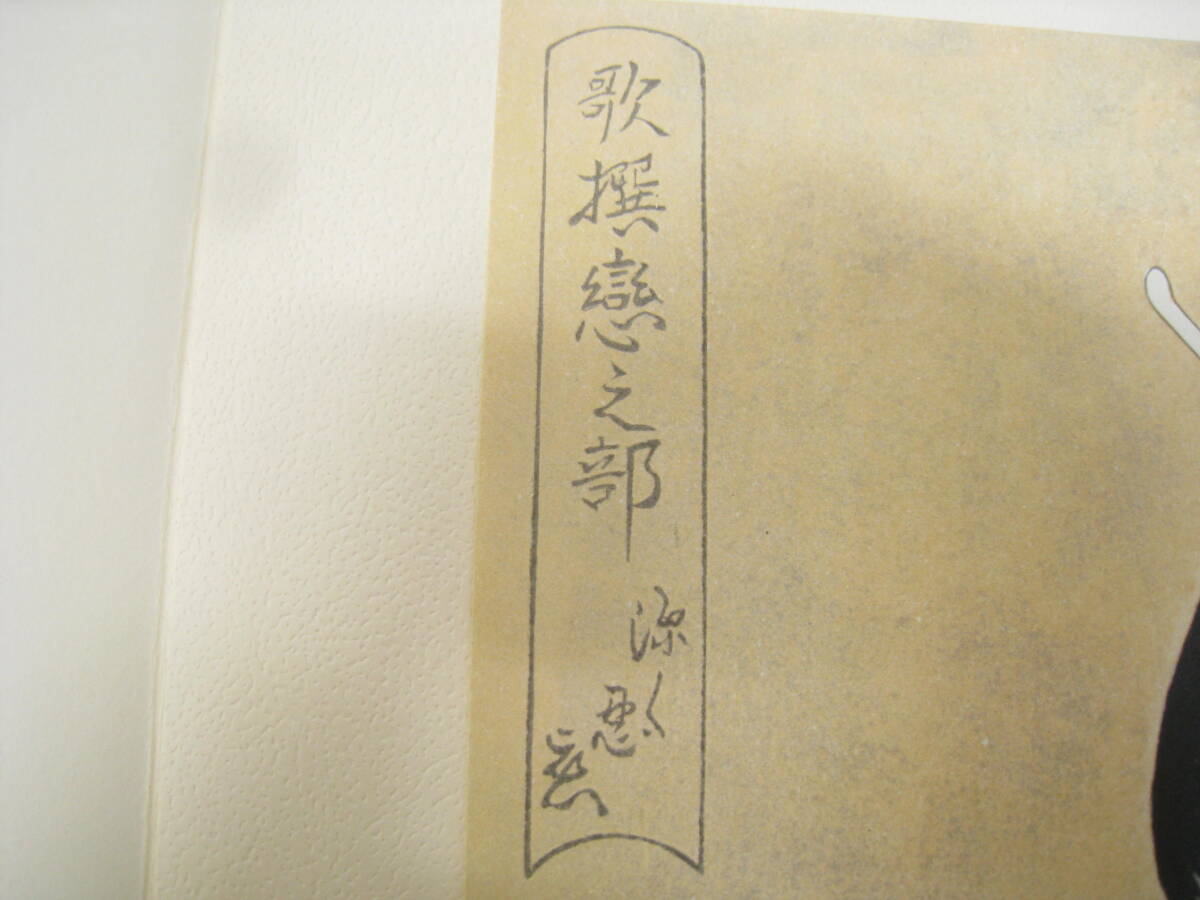 歌撰戀之部
深く
忍
恋